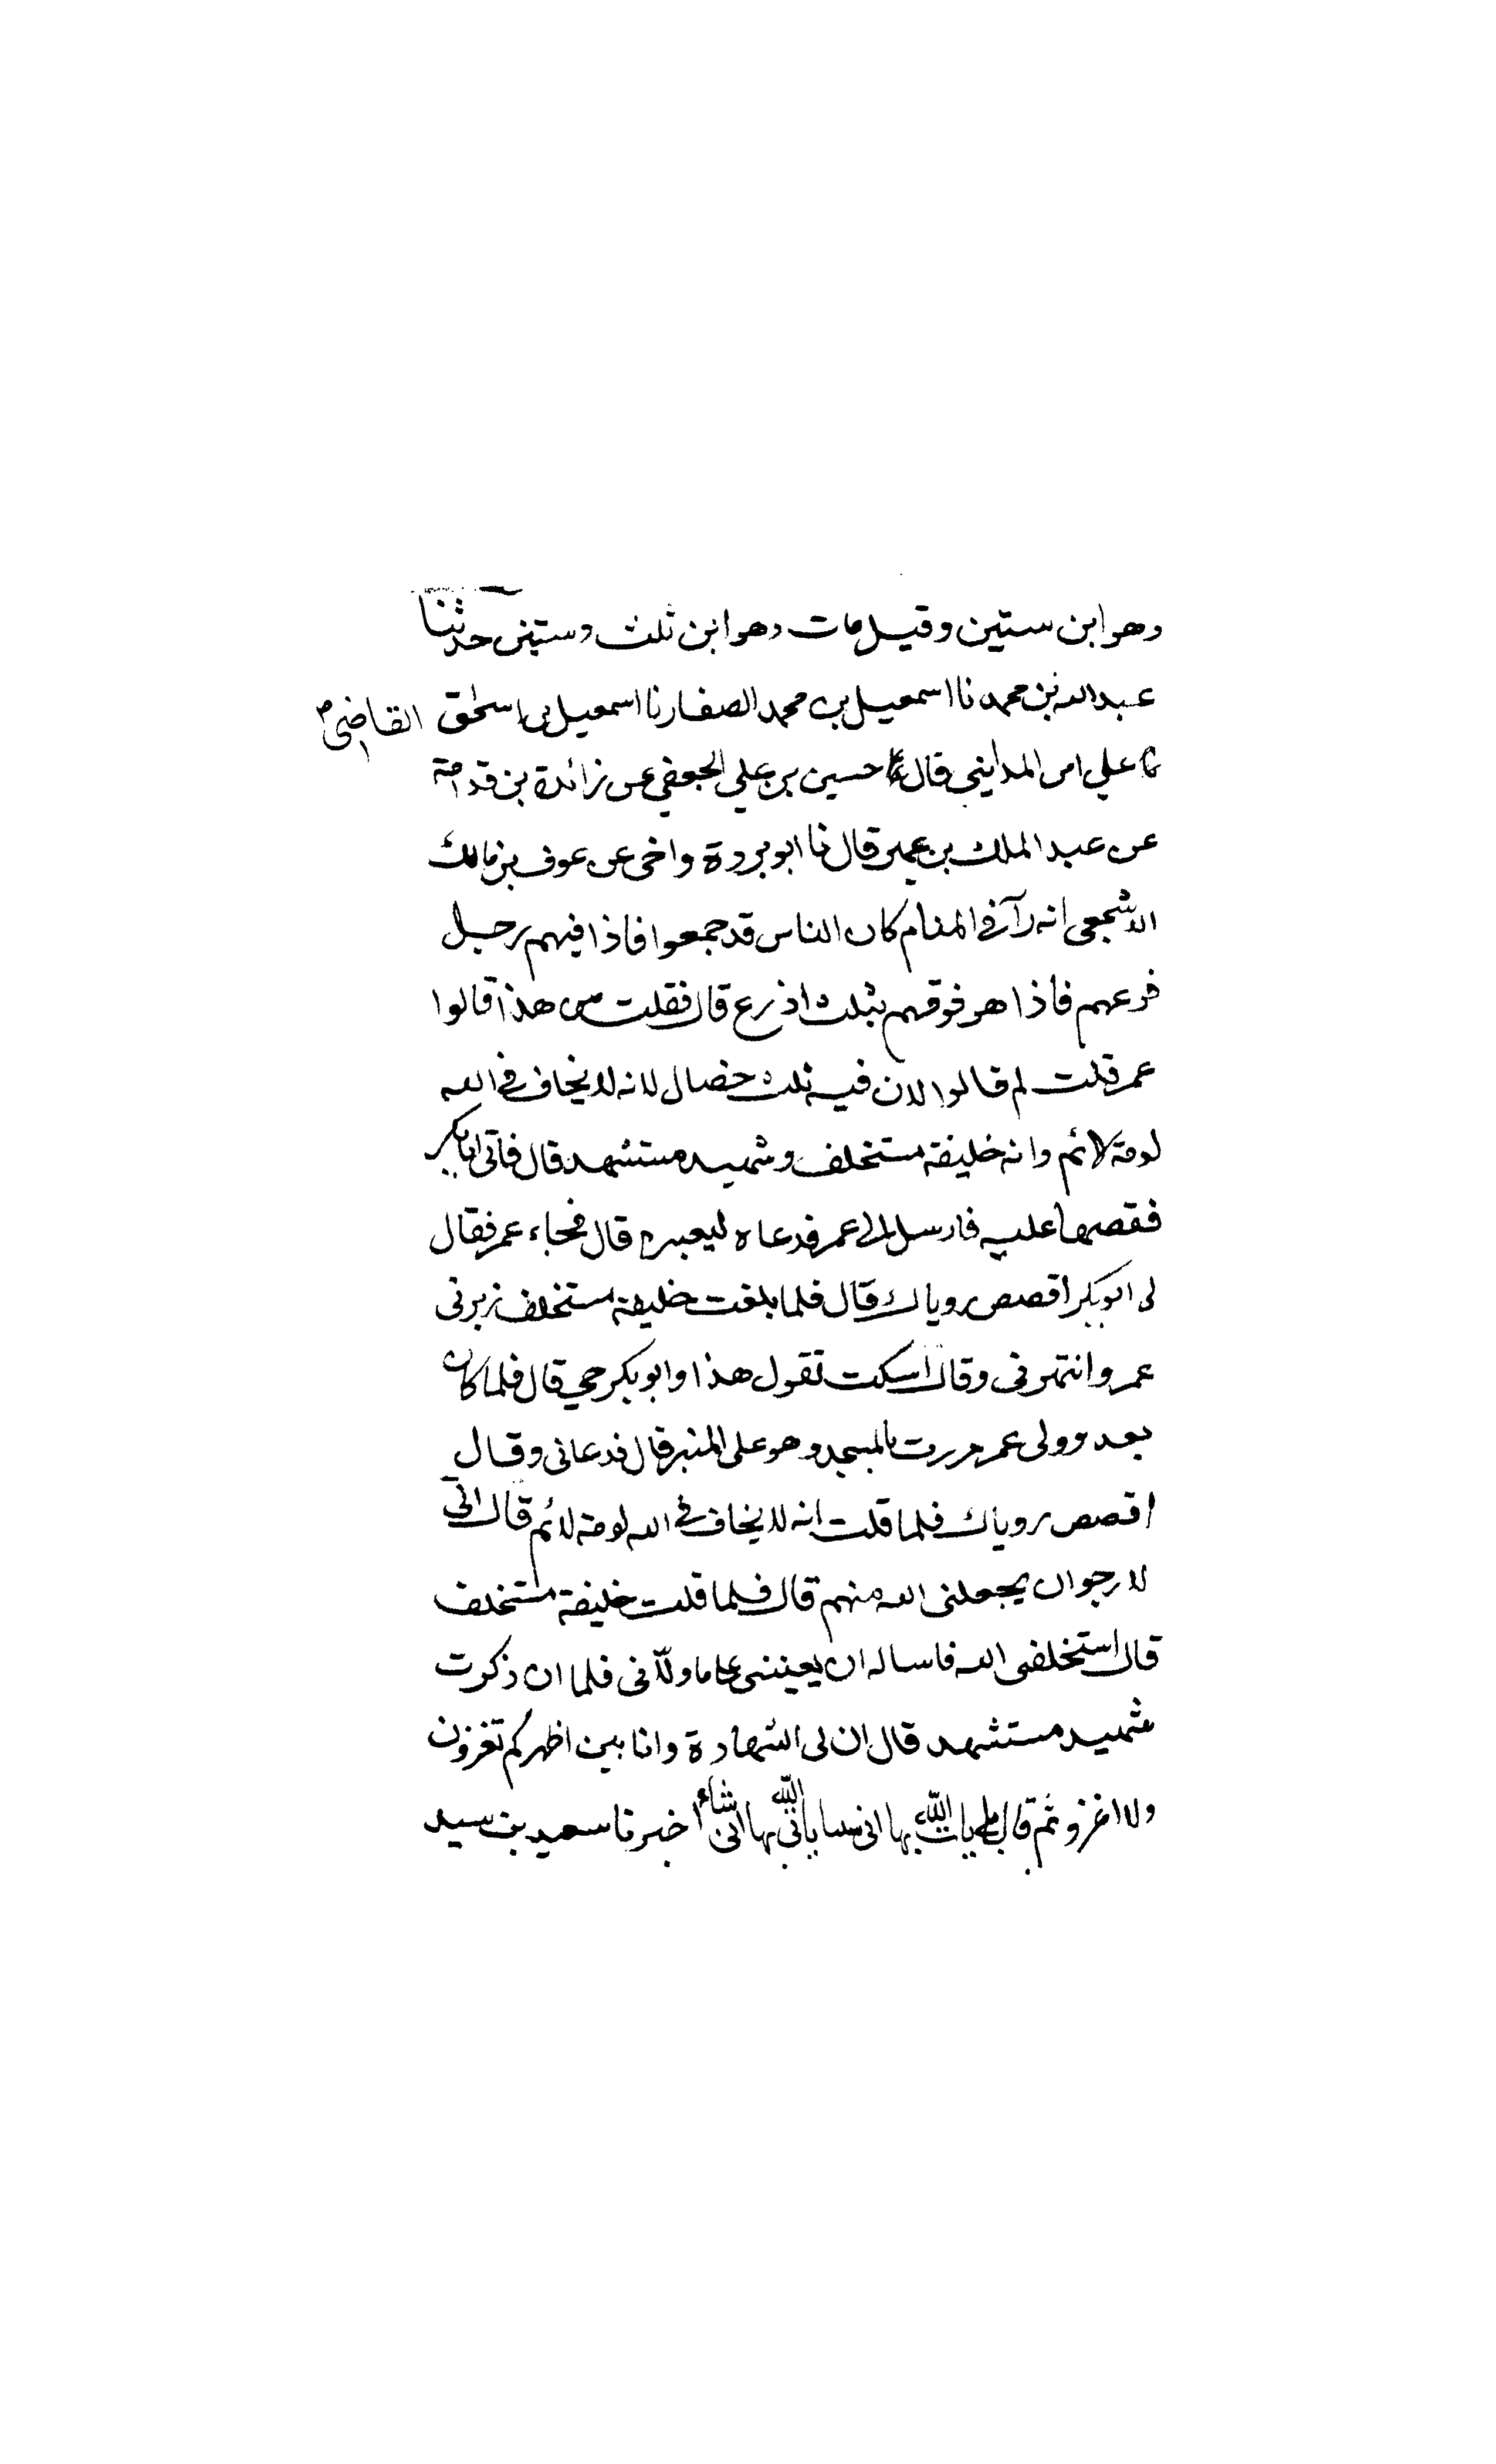 وهو ابن ستين وقيل مات وهو ابن ثلث وستين حدثنا
عبد الله بن محمد نا اسمعيل بن محمد الصفار نا اسمعيل بن اسحق القاضي
نا علي ابن المدايني قال نا حسين بن علي الجعفي عن زائدة بن قدامة
عن عبد الملك بن عمير قال نا ابو بردة واخي عن عوف بن مالك
الاشجعي انه رآ في المنام كان الناس قد جمعوا فاذا فيهم رجل
فرعهم فاذا هو فوقهم بثلث اذرع قال فقلت من هذا قالوا
عمر قلت لم قالوا لان فيه ثلث خصال لانه لا يخاف في الله
لومة لائم وانه خليفة مستخلف وشهيد مستشهد قال فاتى ابا بكر
فقصها عليه فارسل الى عمر فدعاه ليعبره قال فجاء عمر فقال
لى ابو بكر اقصص روياك قال فلما بلغت خليفة مستخلف زبرنى
عمر وانتهرنى وقال اسكت تقول هذا وابو بكر حي قال فلما كان
بعد وولى عمر مررت بالمسجد وهو على المنبر قال فدعانى وقال
اقصص روياك فلما قلت انه لا يخاف في الله لومة لائم قال انى
لارجو ان يجعلنى الله منهم قال فلما قلت خليفة مستخلف
قال استخلفنى الله فاساله ان يعيننى على ما ولانى فلما ان ذكرت
شهيد مستشهد قال ان لى الشهادة وانا بين اظهركم تغزون
ولا اغزو ثم قال بلى يات الله بها انى شا ياتى الله بها انى شاء اخبرنا سعيد بن سيد